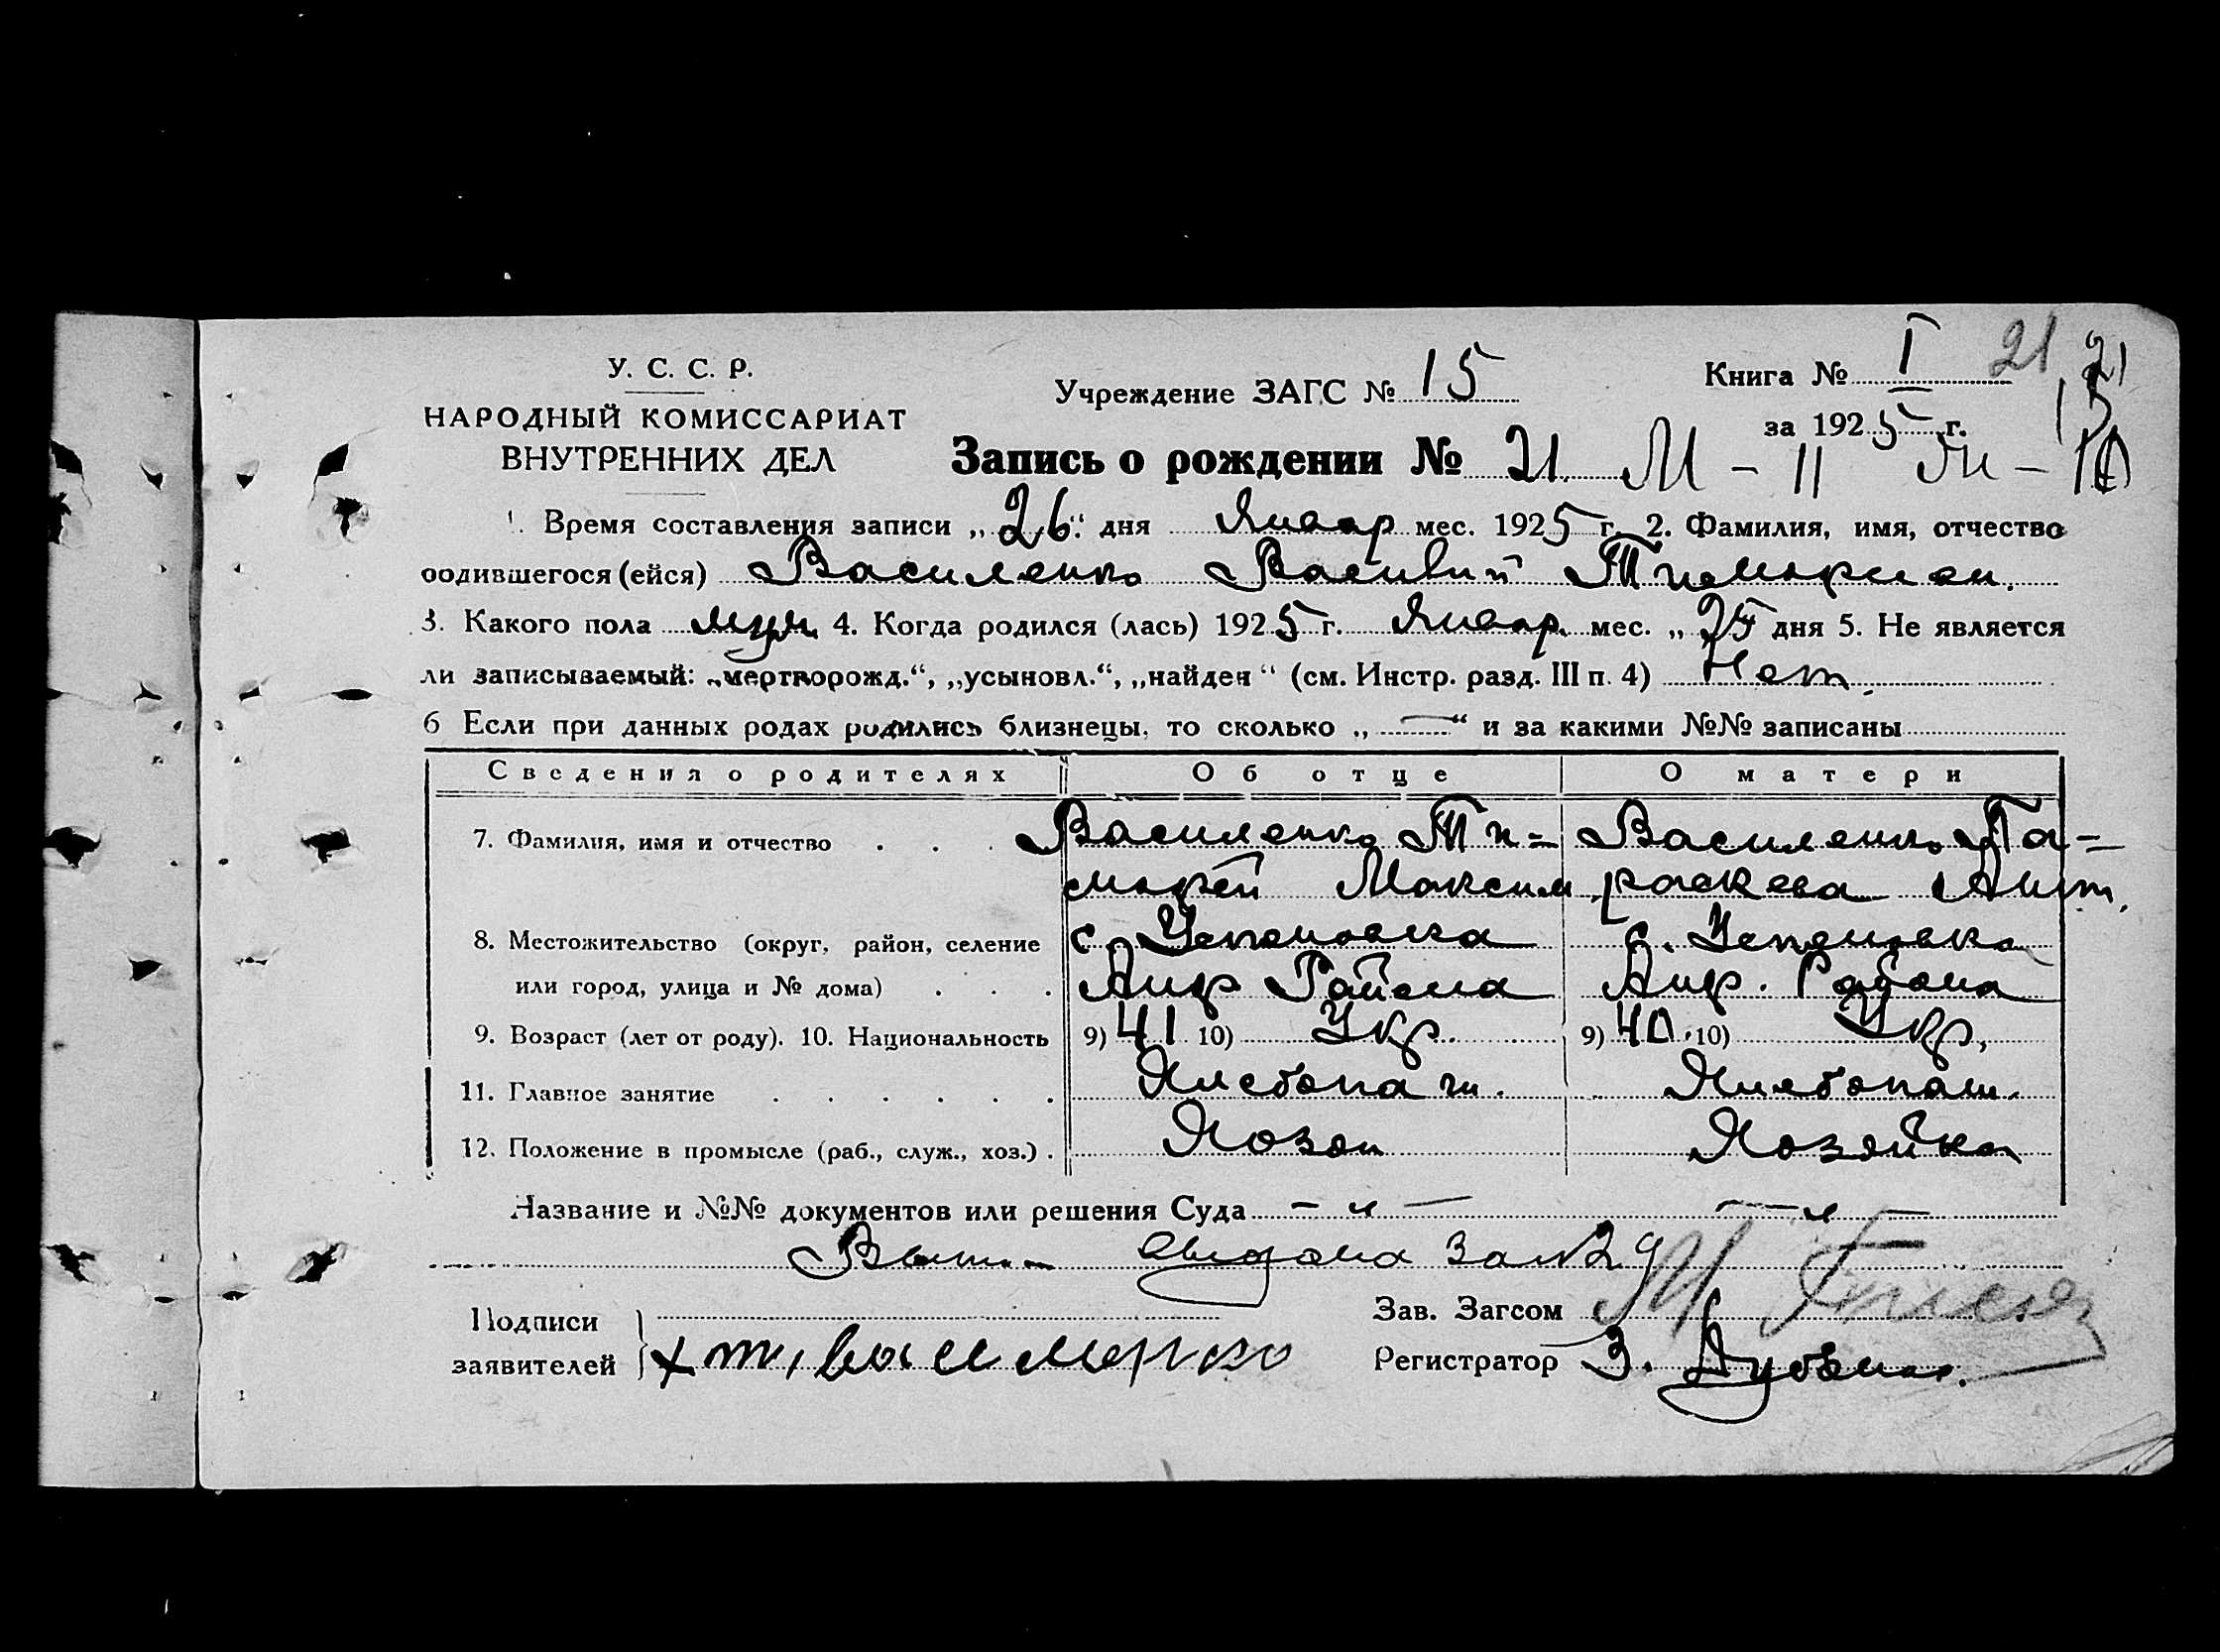 У. С. С. Р.
НАРОДНЫЙ КОМИССАРИАТ
ВНУТРЕННИХ ДЕЛ
Учреждение ЗАГС № 15
Книга № I 21 21
за 1925 г. 15
Запись о рождении № 21. М - 11
1. Время составления записи „26“ дня Январ мес. 1925 г. 2. Фамилия, имя, отчество
родившегося (ейся) Василенко Василий
3. Какого пола муж. 4. Когда родился (лась) 1925 г. Январ. мес. „ дня 5. Не является
ли записываемый: „мертворожд.“, „усыновл.“, „найден“ (см. Инстр. разд. III п. 4) Нет.
6 Если при данных родах родились близнецы, то сколько „—“ и за какими №№ записаны
Сведения о родителях Об отце О матери
7. Фамилия, имя и отчество . . . Василенко Ти= Василенко Па=
мофей Максим раскева Ант.
8. Местожительство (округ, район, селение с. Успеновка с. Успеновка
или город, улица и № дома) . . . Района Района
9. Возраст (лет от роду). 10. Национальность 9) 41 10) Укр. 9) 40. 10) Укр.
11. Главное занятие . . . . . . Хлебопаш. Хлебопаш.
12. Положение в промысле (раб., служ., хоз.) . Хозяин Хозяйка
Название и №№ документов или решения Суда - и - - и -
за №
Подписи
заявителей
Зав. Загсом
Регистратор З.